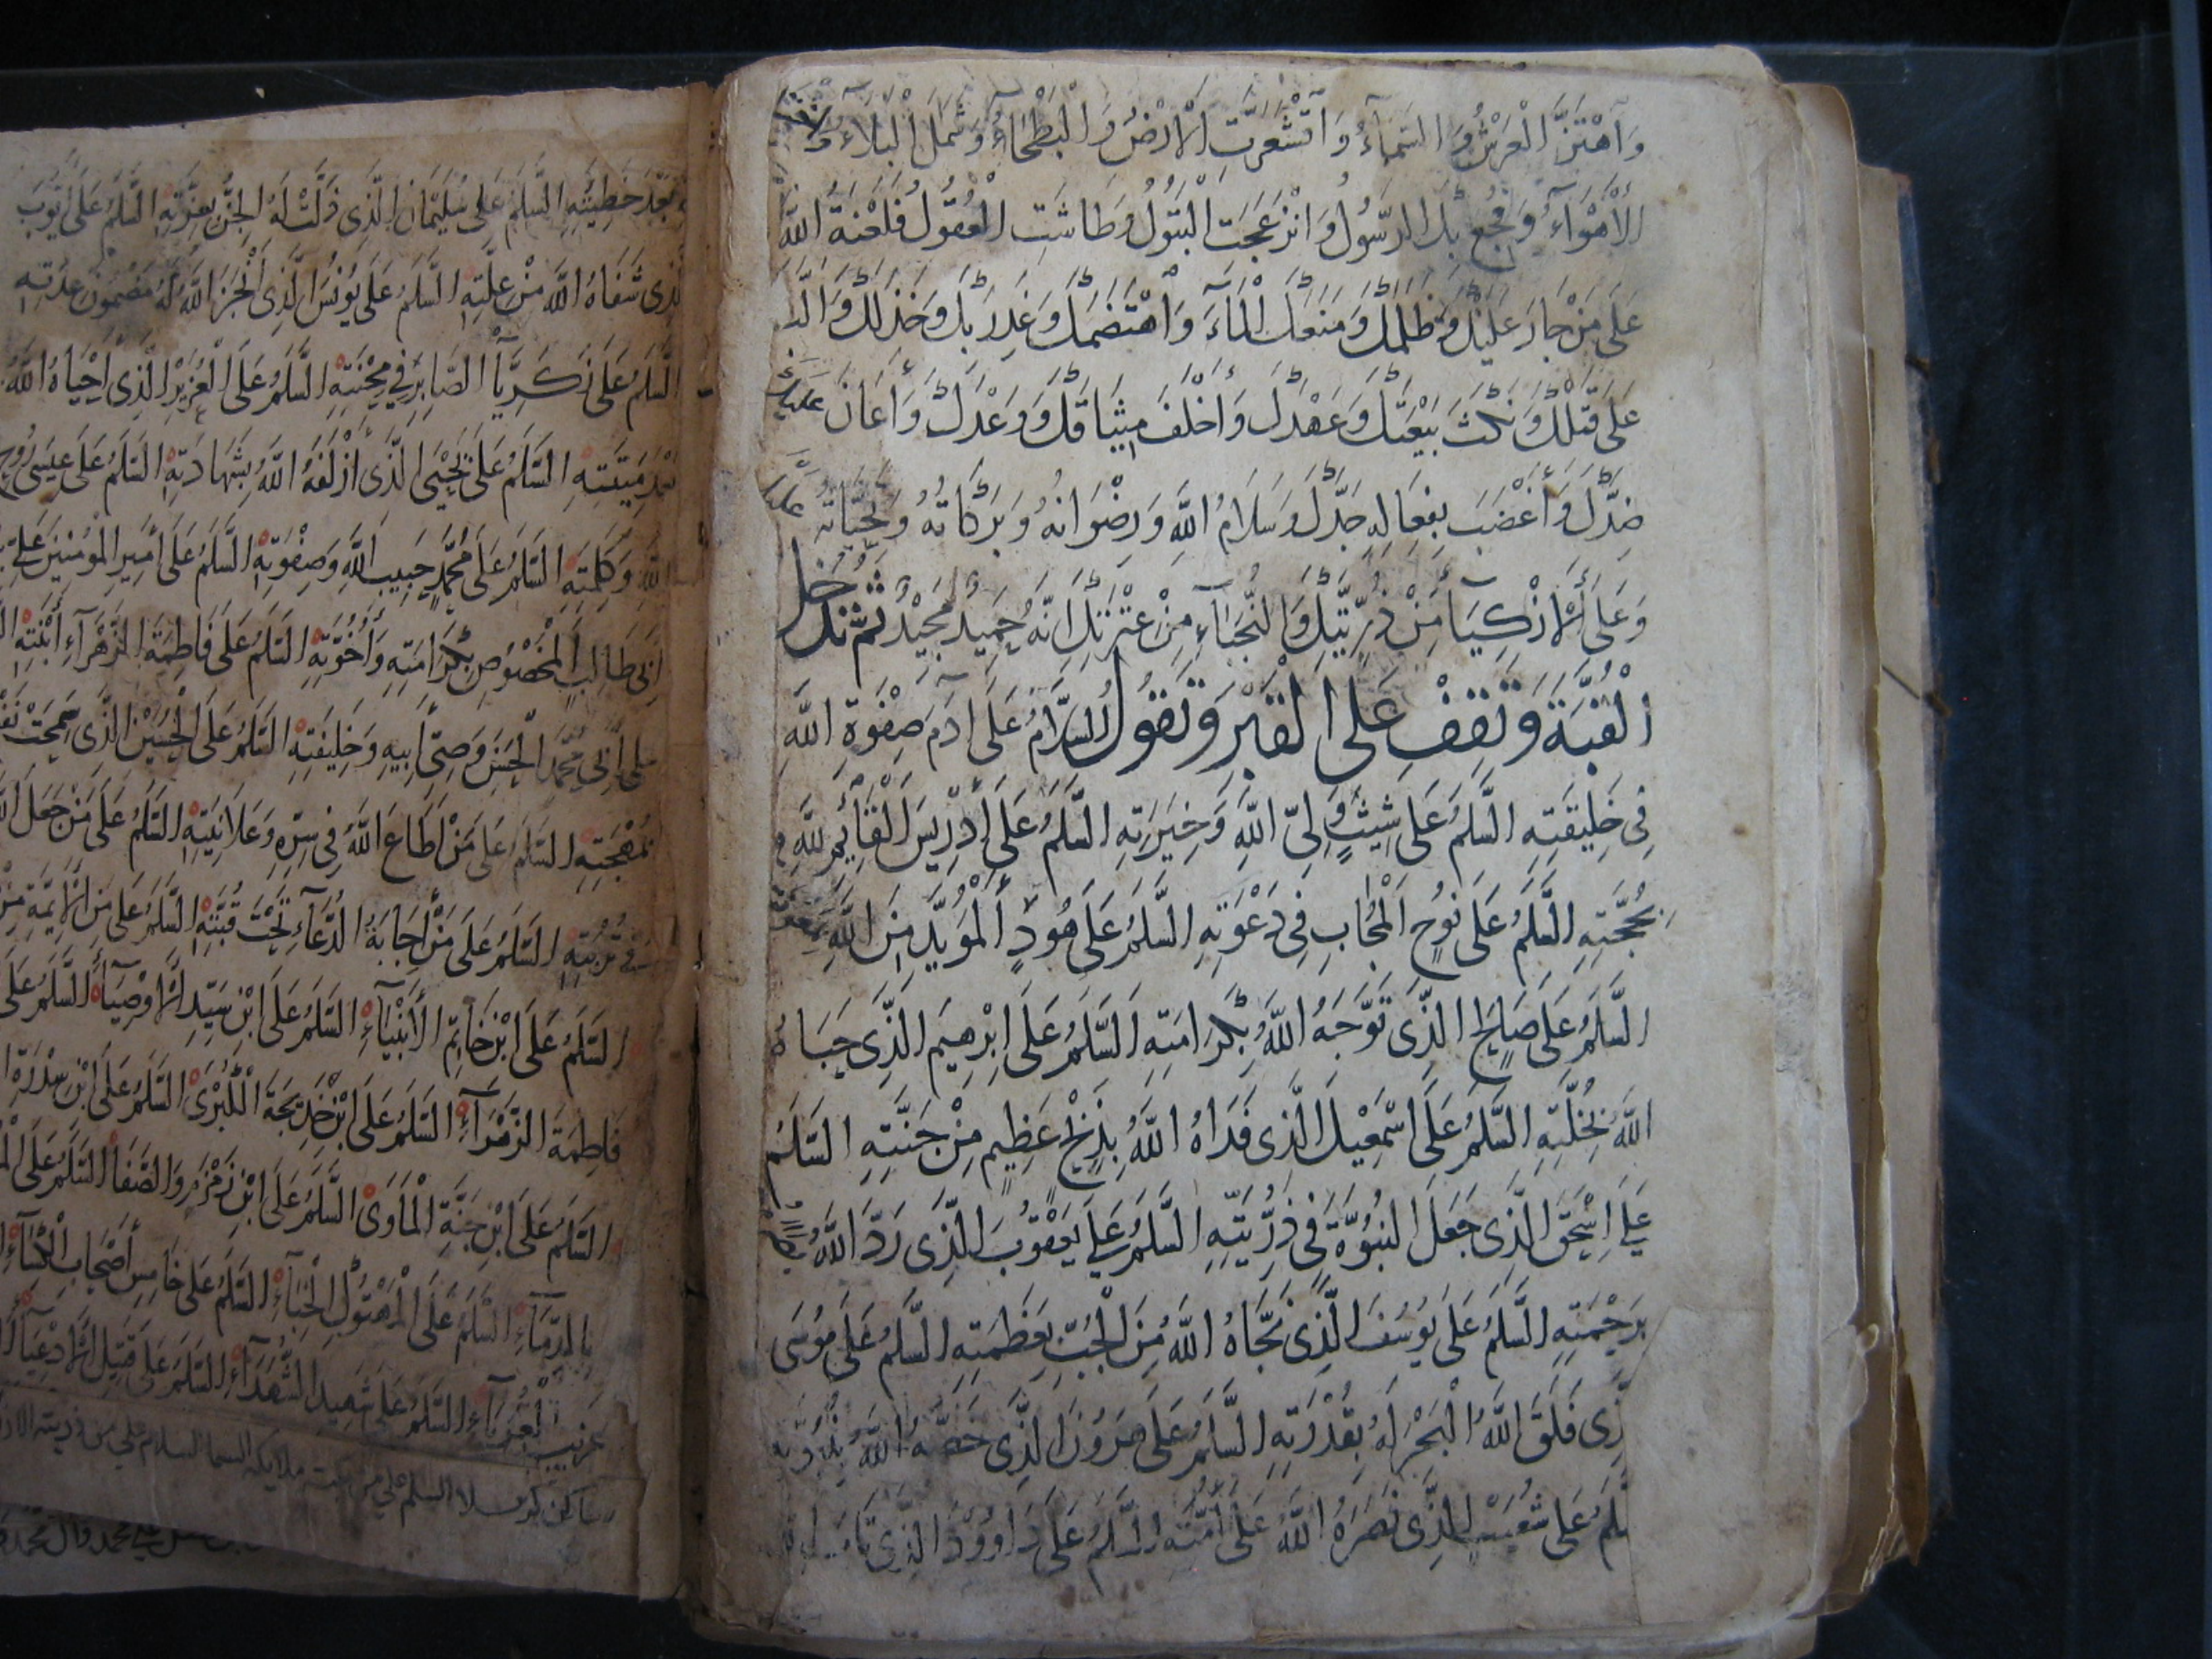 وَاهْتَزَّ الْعَرْشُ وَالسَّمَآءُ وَاقْشَعَرَّتِ الْاَرْضُ وَالْبَطْحَاءُ وَشَمَلَ الْبَلَاءُ
الْاَهْوَآءُ وَفُجِعَ بِكَ الرَّسُولُ وَانْزَعَجَتِ الْبَتُولُ وَطَاشَتِ الْعُقُولُ فَلَعْنَةُ اللّٰهِ
عَلَى مَنْ جَارَ عَلَيْكَ وَظَلَمَكَ وَمَنَعَكَ الْمَآءَ وَاهْتَضَمَكَ وَغَدَرَ بِكَ وَخَذَلَكَ وَاَلَّبَ
عَلَى قَتْلِكَ وَنَكَثَ بَيْعَتَكَ وَعَهْدَكَ وَاَخْلَفَ مِيثَاقَكَ وَوَعْدَكَ وَاَعَانَ عَلَيْكَ
ضِدَّكَ وَاَغْضَبَ بِفِعَالِهِ جَدَّكَ وَسَلَامُ اللّٰهِ وَرِضْوَانُهُ وَبَرَكَاتُهُ وَتَحِيَّاتُهُ عَلَيْكَ
وَعَلَى الْاَزْكِيَآءِ مِنْ ذُرِّيَّتِكَ وَالنُّجَبَآءِ مِنْ عِتْرَتِكَ اِنَّهُ حَمِيدٌ مَجِيدٌ ثُمَّ تَدْخُلُ
الْقُبَّةَ وَتَقِفُ عَلَى الْقَبْرِ وَتَقُولُ السَّلَامُ عَلَى اٰدَمَ صِفْوَةِ اللّٰهِ
فِي خَلِيقَتِهِ السَّلَمُ عَلَى شِيثٍ وَلِيِّ اللّٰهِ وَخِيَرَتِهِ السَّلَمُ عَلَى اِدْرِيسَ الْقَآئِمِ لِلّٰهِ
بِحُجَّتِهِ السَّلَمُ عَلَى نُوحٍ الْمُجَابِ فِي دَعْوَتِهِ السَّلَمُ عَلَى هُودٍ الْمُؤَيَّدِ مِنَ اللّٰهِ بِمَعُونَتِهِ
السَّلَمُ عَلَى صَالِحٍ الَّذِي تَوَّجَهُ اللّٰهُ بِكَرَامَتِهِ السَّلَمُ عَلَى اِبْرٰهِيمَ الَّذِي حَبَاهُ
اللّٰهُ بِخُلَّتِهِ السَّلَمُ عَلَى اِسْمٰعِيلَ الَّذِي فَدَاهُ اللّٰهُ بِذِبْحٍ عَظِيمٍ مِنْ جَنَّتِهِ السَّلَمُ
عَلَى اِسْحٰقَ الَّذِي جَعَلَ النُّبُوَّةَ فِي ذُرِّيَّتِهِ السَّلَمُ عَلَى يَعْقُوبَ الَّذِي رَدَّ اللّٰهُ
بِرَحْمَتِهِ السَّلَمُ عَلَى يُوسُفَ الَّذِي نَجَّاهُ اللّٰهُ مِنَ الْجُبِّ بِعَظَمَتِهِ السَّلَمُ عَلَى مُوسَى
ذِي فَلَقَ اللّٰهُ الْبَحْرَ لَهُ بِقُدْرَتِهِ السَّلَمُ عَلَى هٰرُونَ الَّذِي خَصَّهُ اللّٰهُ بِنُبُوَّتِهِ
لَمُ عَلَى شُعَيْبٍ الَّذِي نَصَرَهُ اللّٰهُ عَلَى اُمَّتِهِ السَّلَمُ عَلَى دَاوُودَ الَّذِي تَابَ
بَعْدِ خَطِيئَتِهِ السَّلَمُ عَلَى سُلَيْمَانَ الَّذِي ذَلَّتْ لَهُ الْجِنُّ بِعِزَّتِهِ السَّلَمُ عَلَى اَيُّوبَ
لَّذِي شَفَاهُ اللّٰهُ مِنْ عِلَّتِهِ السَّلَمُ عَلَى يُونُسَ الَّذِي اَنْجَزَ اللّٰهُ لَهُ مَضْمُونَ عِدَتِهِ
السَّلَمُ عَلَى زَكَرِيَّا الصَّابِرِ فِي مِحْنَتِهِ السَّلَمُ عَلَى الْعُزَيْرِ الَّذِي اَحْيَاهُ اللّٰهُ
بَعْدَ مَيْتَتِهِ السَّلَمُ عَلَى يَحْيَى الَّذِي اَزْلَفَهُ اللّٰهُ بِشَهَادَتِهِ السَّلَمُ عَلَى عِيسَى رُوحِ
اللّٰهِ وَكَلِمَتِهِ السَّلَمُ عَلَى مُحَمَّدٍ حَبِيبِ اللّٰهِ وَصِفْوَتِهِ السَّلَمُ عَلَى اَمِيرِ الْمُؤْمِنِينَ عَلِيِّ
اَبِي طَالِبٍ الْمَخْصُوصِ بِكَرَامَتِهِ وَاُخُوَّتِهِ السَّلَمُ عَلَى فَاطِمَةَ الزَّهْرَآءِ ابْنَتِهِ
عَلَى اَبِي مُحَمَّدٍ الْحَسَنِ وَصِيِّ اَبِيهِ وَخَلِيفَتِهِ السَّلَمُ عَلَى الْحُسَيْنِ الَّذِي سَمَحَتْ
بِمُهْجَتِهِ السَّلَمُ عَلَى مَنْ اَطَاعَ اللّٰهَ فِي سِرِّهِ وَعَلَانِيَتِهِ السَّلَمُ عَلَى مَنْ جَعَلَ
فِي تُرْبَتِهِ السَّلَمُ عَلَى مَنِ اجَابَةُ الدُّعَآءِ تَحْتَ قُبَّتِهِ السَّلَمُ عَلَى مَنِ الْاَئِمَّةُ مِنْ
السَّلَمُ عَلَى ابْنِ خَاتِمِ الْاَنْبِيَآءِ السَّلَمُ عَلَى ابْنِ سَيِّدِ الْاَوْصِيَآءِ السَّلَمُ عَلَى
فَاطِمَةَ الزَّهْرَآءِ السَّلَمُ عَلَى ابْنِ خَدِيجَةَ الْكُبْرَى السَّلَمُ عَلَى ابْنِ سِدْرَةِ
السَّلَمُ عَلَى ابْنِ جَنَّةِ الْمَأْوَى السَّلَمُ عَلَى ابْنِ زَمْزَمَ وَالصَّفَا السَّلَمُ عَلَى
بِالدِّمَآءِ السَّلَمُ عَلَى الْمَهْتُوكِ الْخِبَآءِ السَّلَمُ عَلَى خَامِسِ اَصْحَابِ الْكِسَآءِ
غَرِيبِ الْغُرَبَآءِ السَّلَمُ عَلَى شَهِيدِ الشُّهَدَآءِ السَّلَمُ عَلَى قَتِيلِ الْاَدْعِيَآءِ
ساكن كربلا السلم على من بكته ملايكه السما السلام على من ذريته